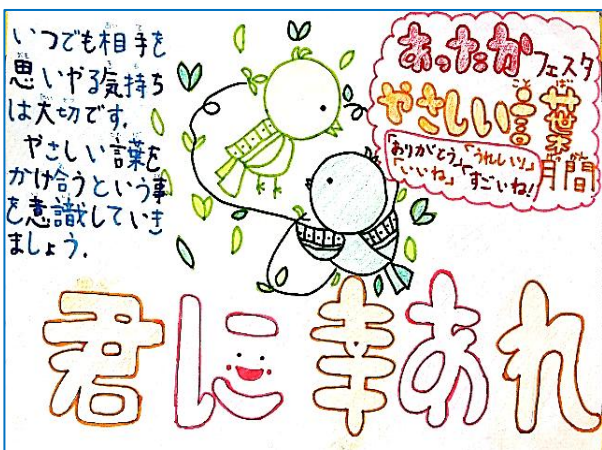 いつでも相手を
思いやる気持ち
は大切です。
やさしい言葉を
かけ合うという事
を意識していき
ましょう。
あったかフェスタ
やさしい言葉月間
「ありがとう」「うれしい」
「いいね」「すごいね!」
君に幸あれ